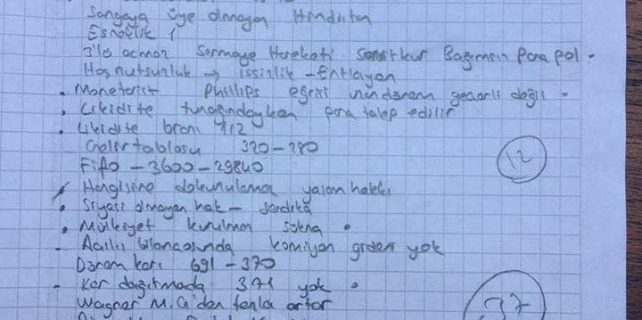 Sangaya üye olmayan Hindistan
Esneklik 1
3'lü açmaz Sermaye Hareketi Sabit kur Bağımsız Para pol -
Hoşnutsunluk → işsizlik - Enflasyon
• Monetarist Phillips eğrisi uzun dönem geçerli değil -
• Likidite tuzağındayken para talep edilir
• Likidite oranı 112
Gelir tablosu 320 - 280
Fifo - 3600 - 29840
Hangisine dokunulamaz yaşam hakkı
• Siyasi olmayan hak - sendika
• Mülkiyet kurulması sükna •
- Açılış bilançosunda komisyon gideri yok
Dönem karı 691 - 370
- Kar dağıtmada 371 yok •
Wagner M.G'den fazla artar
12
37